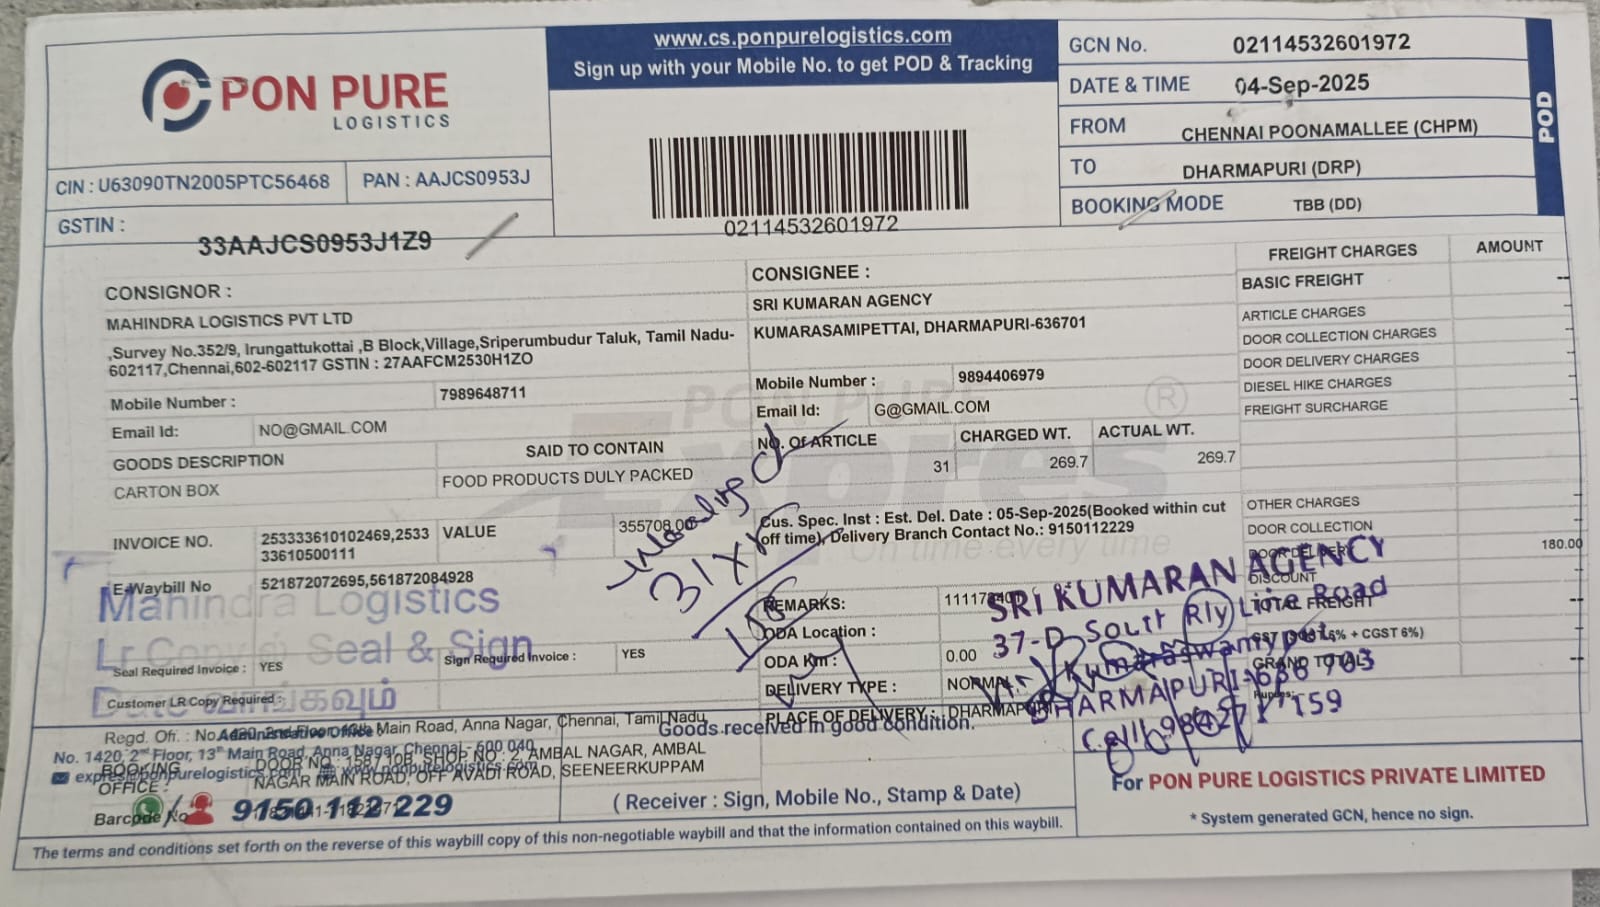 PON PURE
LOGISTICS
www.cs.ponpurelogistics.com
Sign up with your Mobile No. to get POD & Tracking
02114532601972
GCN No. 02114532601972
DATE & TIME 04-Sep-2025
FROM CHENNAI POONAMALLEE (CHPM)
TO DHARMAPURI (DRP)
BOOKING MODE TBB (DD)
POD
CIN : U63090TN2005PTC56468 PAN : AAJCS0953J
GSTIN : 33AAJCS0953J1Z9
CONSIGNOR :
MAHINDRA LOGISTICS PVT LTD
,Survey No.352/9, Irungattukottai ,B Block,Village,Sriperumbudur Taluk, Tamil Nadu-
602117,Chennai,602-602117 GSTIN : 27AAFCM2530H1ZO
Mobile Number : 7989648711
Email Id: NO@GMAIL.COM
GOODS DESCRIPTION SAID TO CONTAIN
CARTON BOX FOOD PRODUCTS DULY PACKED
INVOICE NO. 253333610102469,2533
33610500111
VALUE 355708.00
E-Waybill No 521872072695,561872084928
Mahindra Logistics
Lr Copy Seal & Sign
Seal Required Invoice : YES Sign Required Invoice : YES
Customer LR Copy Required :
Date வாங்கவும்
CONSIGNEE :
SRI KUMARAN AGENCY
KUMARASAMIPETTAI, DHARMAPURI-636701
Mobile Number : 9894406979
Email Id: G@GMAIL.COM
PON PURE
Expres
®
On time every time
NO. Of ARTICLE CHARGED WT. ACTUAL WT.
31 269.7 269.7
Cus. Spec. Inst : Est. Del. Date : 05-Sep-2025(Booked within cut
off time), Delivery Branch Contact No.: 9150112229
REMARKS:
ODA Location :
ODA Km : 0.00
DELIVERY TYPE : NORMAL
PLACE OF DELIVERY : DHARMAPURI
FREIGHT CHARGES AMOUNT
BASIC FREIGHT --
ARTICLE CHARGES
DOOR COLLECTION CHARGES
DOOR DELIVERY CHARGES
DIESEL HIKE CHARGES
FREIGHT SURCHARGE
OTHER CHARGES
DOOR COLLECTION
DOOR DELIVERY 180.00
DISCOUNT
TOTAL FREIGHT --
6% + CGST 6%)
GRAND TOTAL --
Rupees:
31
SRI KUMARAN AGENCY
37-D South Rly Line Road
Kumaraswamypet,
DHARMAPURI-636 703
Cell:
Regd. Off. :
Administrative Office
Main Road, Anna Nagar, Chennai, Tamil Nadu
No. 1420, 2nd Floor, 13th Main Road, Anna Nagar, Chennai - 600 040
BOOKING
OFFICE :
DOOR NO : 158/10B, SHOP NO : 2, AMBAL NAGAR, AMBAL
NAGAR MAIN ROAD, OFF AVADI ROAD, SEENEERKUPPAM
expres@ponpurelogistics.com www.ponpurelogistics.com
Barcode No
9150 112 229
Goods received in good condition.
( Receiver : Sign, Mobile No., Stamp & Date)
For PON PURE LOGISTICS PRIVATE LIMITED
* System generated GCN, hence no sign.
The terms and conditions set forth on the reverse of this waybill copy of this non-negotiable waybill and that the information contained on this waybill.